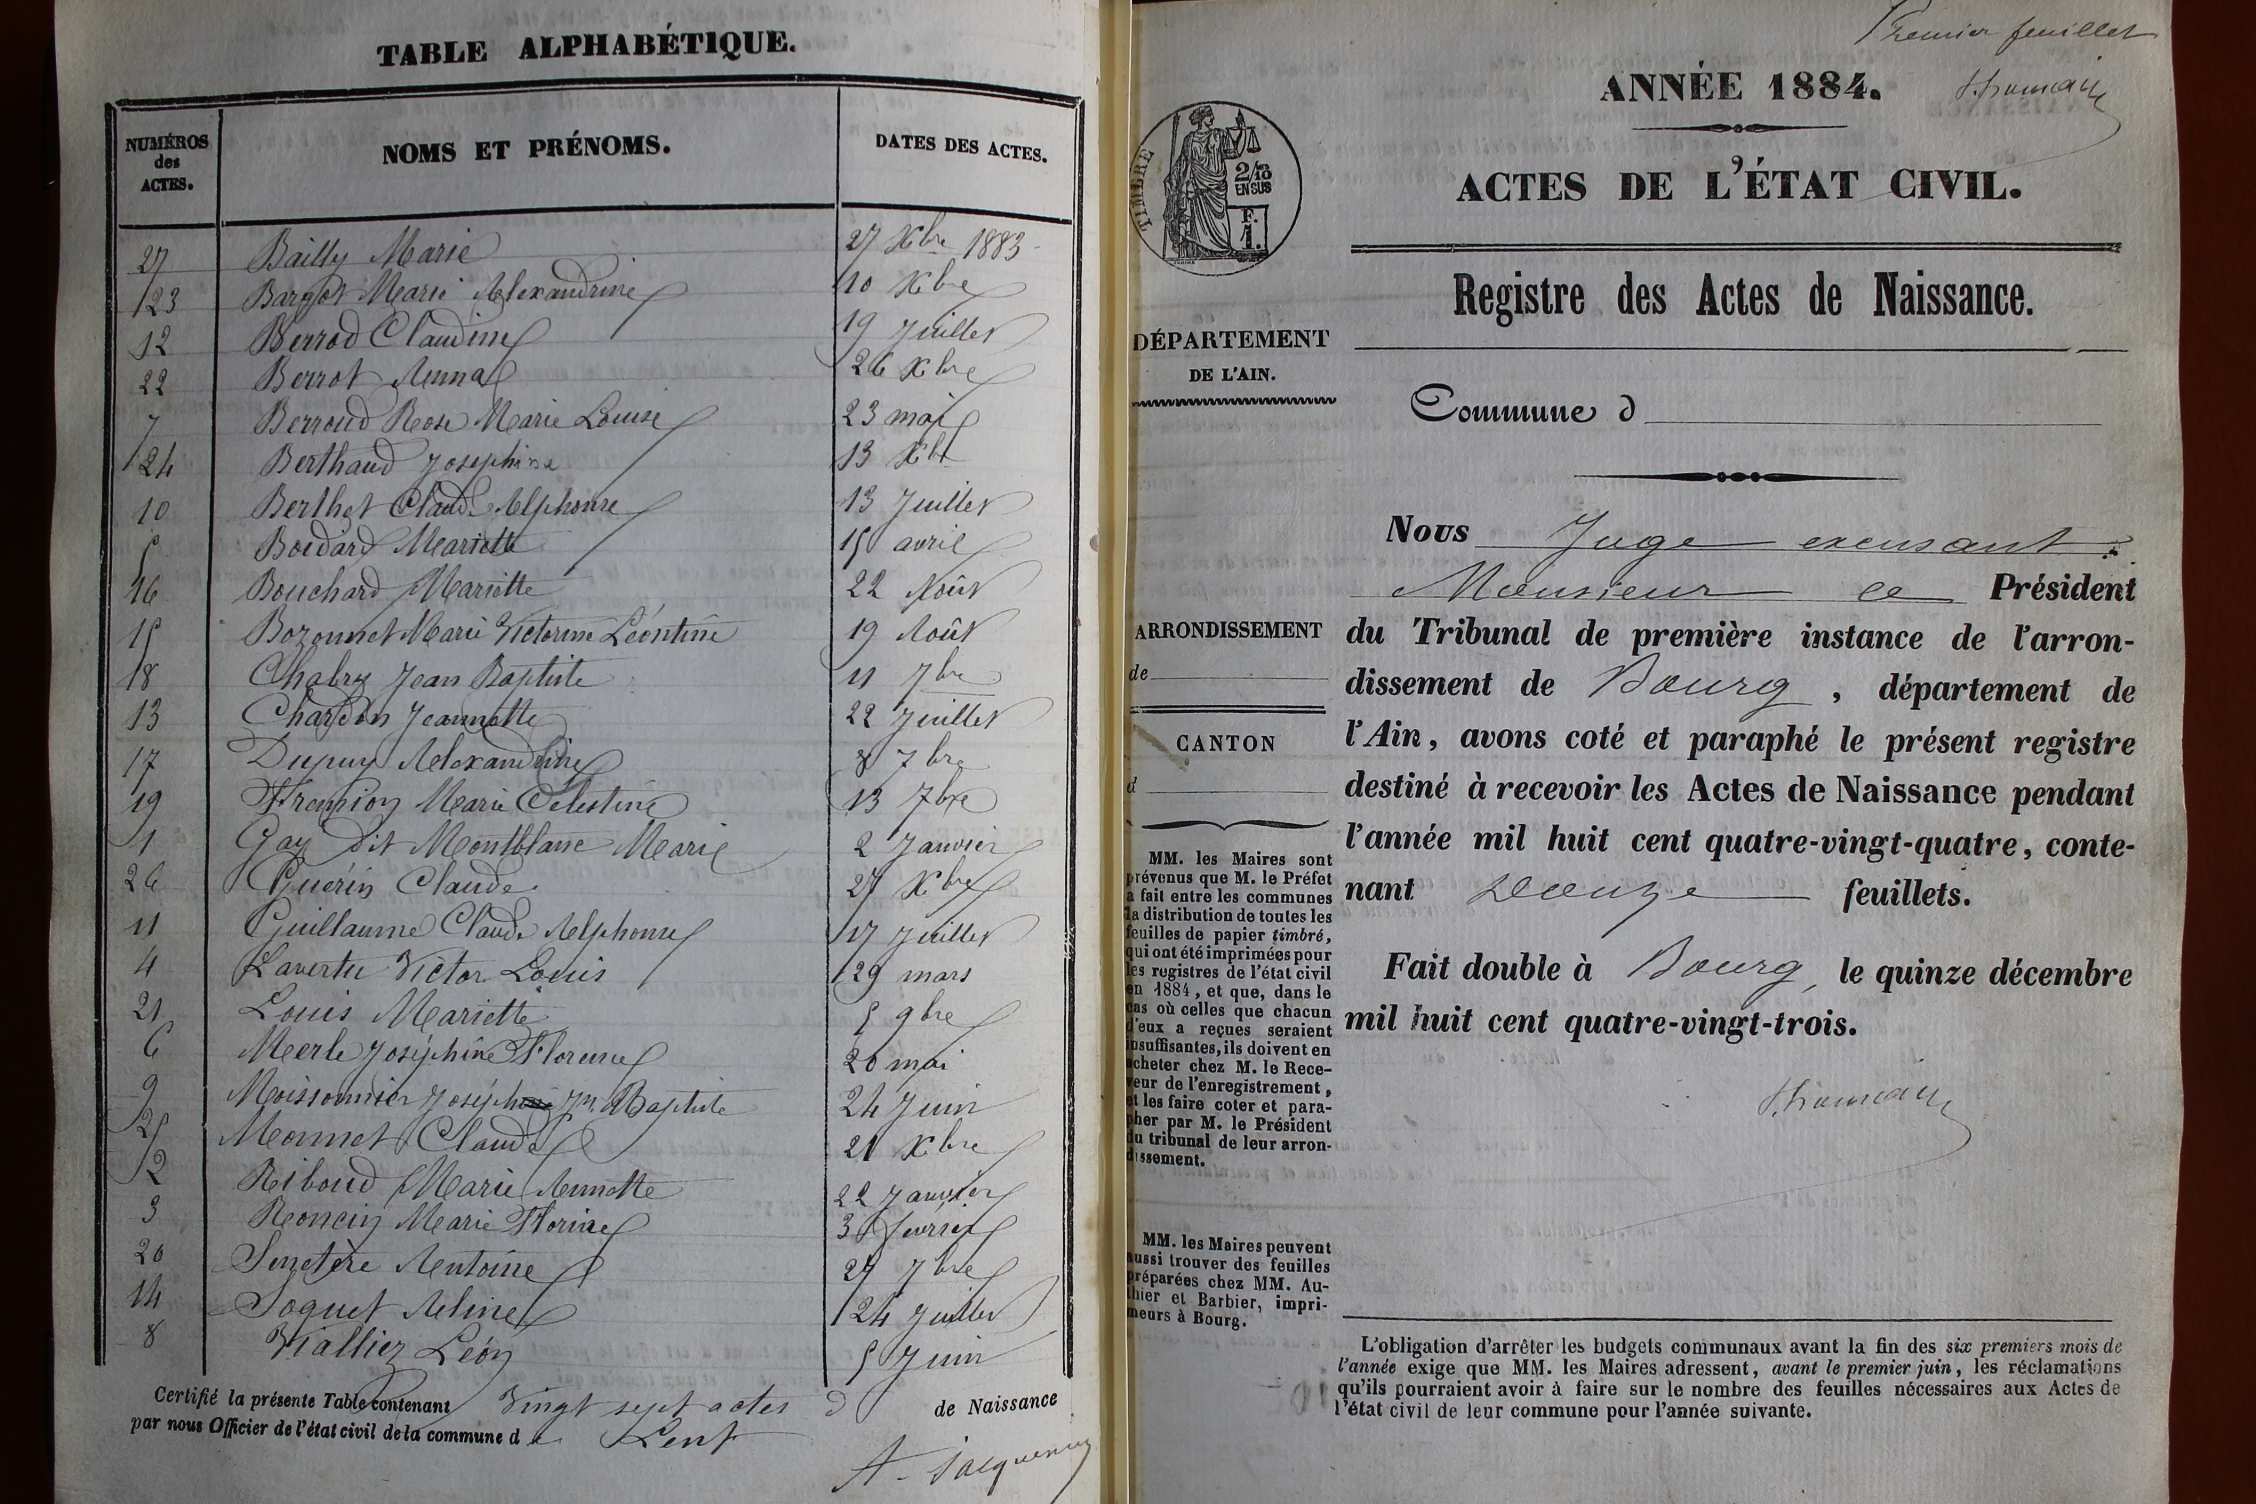 TABLE ALPHABÉTIQUE.
NUMÉROS des ACTES. NOMS ET PRÉNOMS. DATES DES ACTES.
27 Bailly Marie 27 Xbre 1883
23 Bargot Marie Alexandrine 10 Xbre
12 Berrod Claudine 19 Juillet
22 Berrot Anna 26 Xbre
7 Berroud Rose Marie Louise 23 mai
24 Berthaud Joséphine 13 Xbre
10 Berthet Claude Alphonse 13 Juillet
5 Boidard Mariette 15 avril
16 Bouchard Mariette 22 Août
15 Bozonnet Marie Victorine Léontine 19 Août
18 Chabry Jean Baptiste 11 7bre
13 Chardon Jeannette 22 Juillet
17 Dupuy Alexandrine 8 7bre
19 Fromion Marie Célestine 13 7bre
1 Gay dit Montblanc Marie 2 Janvier
26 Guérin Claude 27 Xbre
11 Guillaume Claude Alphonse 17 Juillet
4 Lavertu Victor Louis 29 mars
21 Louis Mariette 5 9bre
6 Merle Joséphine Florence 20 mai
9 Moissonnier Joseph Jn Baptiste 24 Juin
25 Monnet Claude 21 Xbre
2 Riboud Marie Annette 22 Janvier
3 Roncin Marie Florine 3 février
20 Senetère Antoine 27 7bre
14 Soquet Aline 24 Juillet
8 Viallier Léon 5 Juin
Certifié la présente Table contenant Vingt sept actes d de Naissance
par nous Officier de l'état civil de la commune de Lent
A. Jacquemin
Premier feuillet
ANNÉE 1884.
ACTES DE L'ÉTAT CIVIL.
TIMBRE
2/10
EN SUS
F.
1.
Registre des Actes de Naissance.
DÉPARTEMENT
DE L'AIN.
Commune d
ARRONDISSEMENT
de
CANTON
d
MM. les Maires sont
prévenus que M. le Préfet
a fait entre les communes
la distribution de toutes les
feuilles de papier timbré,
qui ont été imprimées pour
les registres de l'état civil
en 1884, et que, dans le
cas où celles que chacun
d'eux a reçues seraient
insuffisantes, ils doivent en
acheter chez M. le Rece-
veur de l'enregistrement,
et les faire coter et para-
pher par M. le Président
du tribunal de leur arron-
dissement.
MM. les Maires peuvent
aussi trouver des feuilles
préparées chez MM. Au-
thier et Barbier, impri-
meurs à Bourg.
Nous Juge excusant
Monsieur le Président
du Tribunal de première instance de l'arron-
dissement de Bourg, département de
l'Ain, avons coté et paraphé le présent registre
destiné à recevoir les Actes de Naissance pendant
l'année mil huit cent quatre-vingt-quatre, conte-
nant Douze feuillets.
Fait double à Bourg, le quinze décembre
mil huit cent quatre-vingt-trois.
L'obligation d'arrêter les budgets communaux avant la fin des six premiers mois de
l'année exige que MM. les Maires adressent, avant le premier juin, les réclamations
qu'ils pourraient avoir à faire sur le nombre des feuilles nécessaires aux Actes de
l'état civil de leur commune pour l'année suivante.